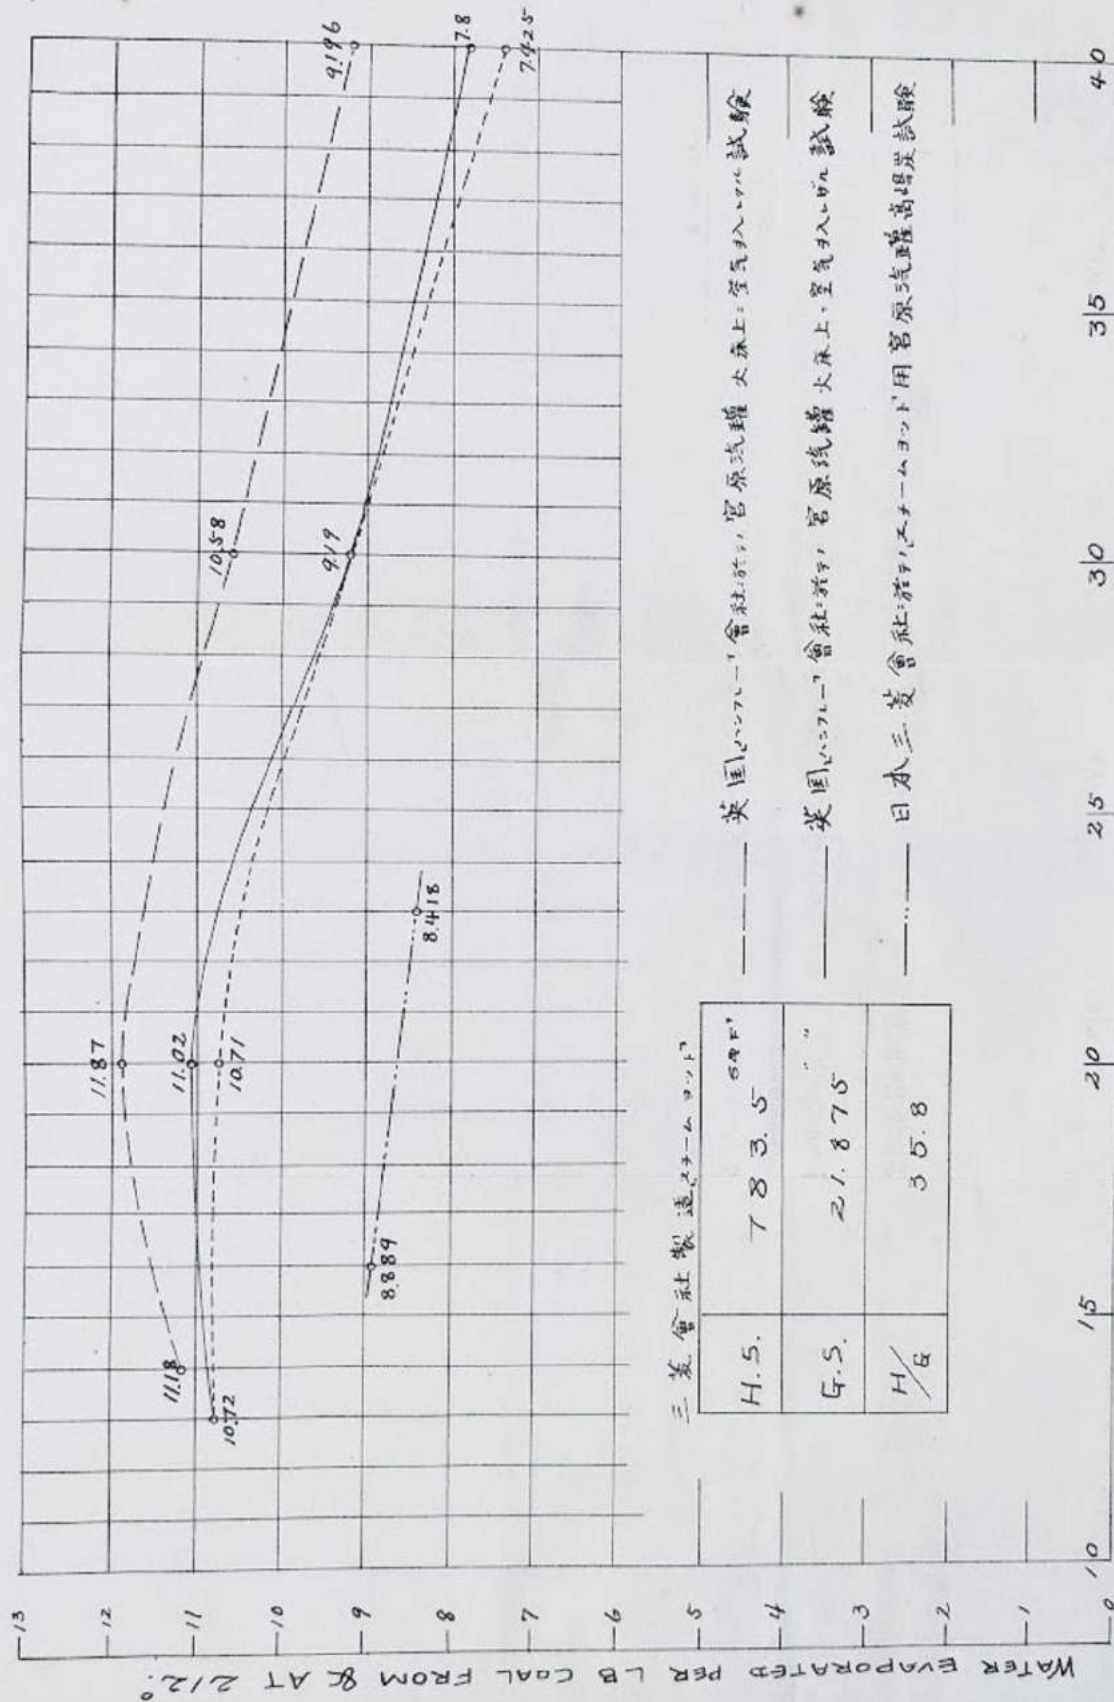 WATER EVAPORATED PER LB COAL FROM & AT 212°
13
12
11
10
9
8
7
6
5
4
3
2
1
0
11.18
11.87
10.58
9.196
10.72
11.02
10.71
9.19
7.8
7.425
8.889
8.418
三菱會社製造スチームヨット
H.S. 783.5
G.S. 21.875 〃
H/G 35.8
英国ハンフレー 會社ニ於テノ 宮原汽罐 火床上ニ空気ヲ入レタル試験
英国ハンフレー 會社ニ於テノ 宮原汽罐 火床上ニ空気ヲ入レザル試験
日本三菱會社ニ於テノスチームヨット用宮原汽罐高島炭試験
10
15
20
25
30
35
40